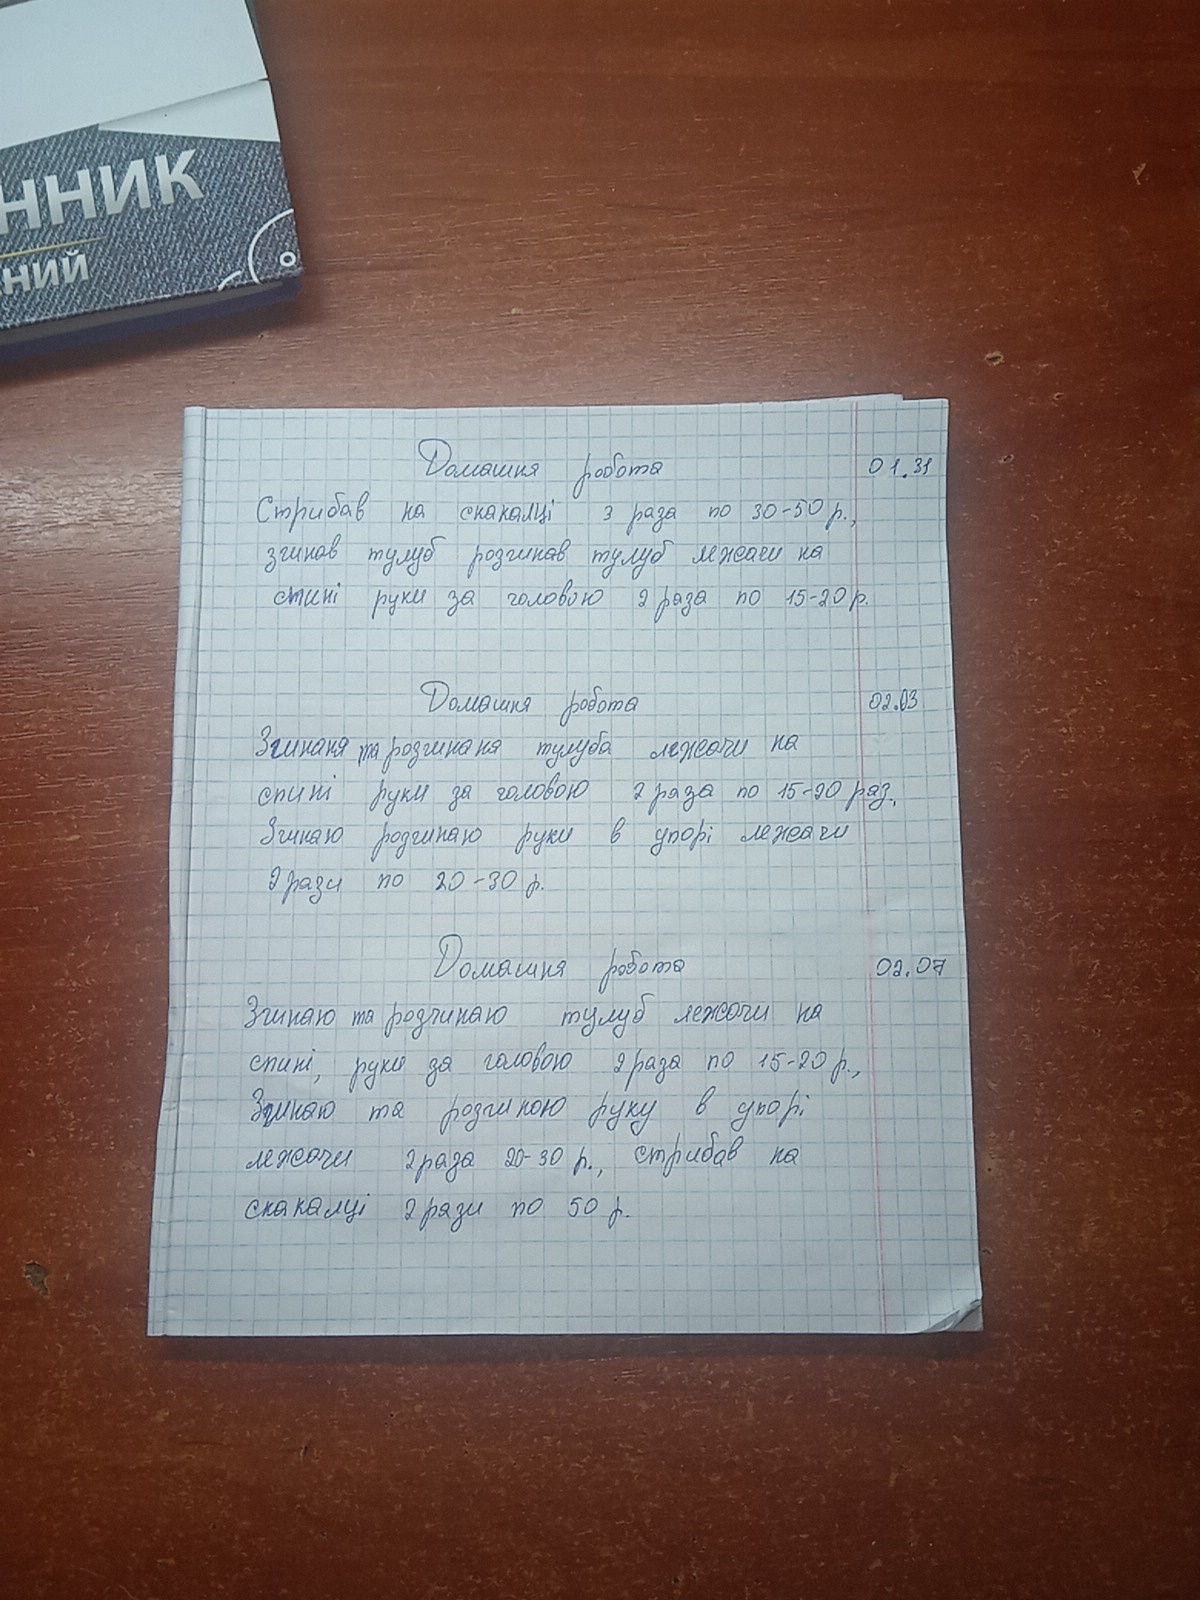 ННИК
НИЙ
Домашня робота 01.31
Стрибав на скакалці 3 раза по 30-50 р.,
згинав тулуб розгинав тулуб лежачи на
спині руки за головою 2 раза по 15-20 р.
Домашня робота 02.03
Згинаня та розгинаня тулуба лежачи на
спині руки за головою 2 раза по 15-20 раз.
Згинаю розгинаю руки в упорі лежачи
2 рази по 20-30 р.
Домашня робота 02.07
Згинаю та розгинаю тулуб лежачи на
спині, руки за головою 2 раза по 15-20 р.,
Згинаю та розгиною руку в упорі
лежачи 2 раза 20-30 р., стрибав на
скакалці 2 рази по 50 р.